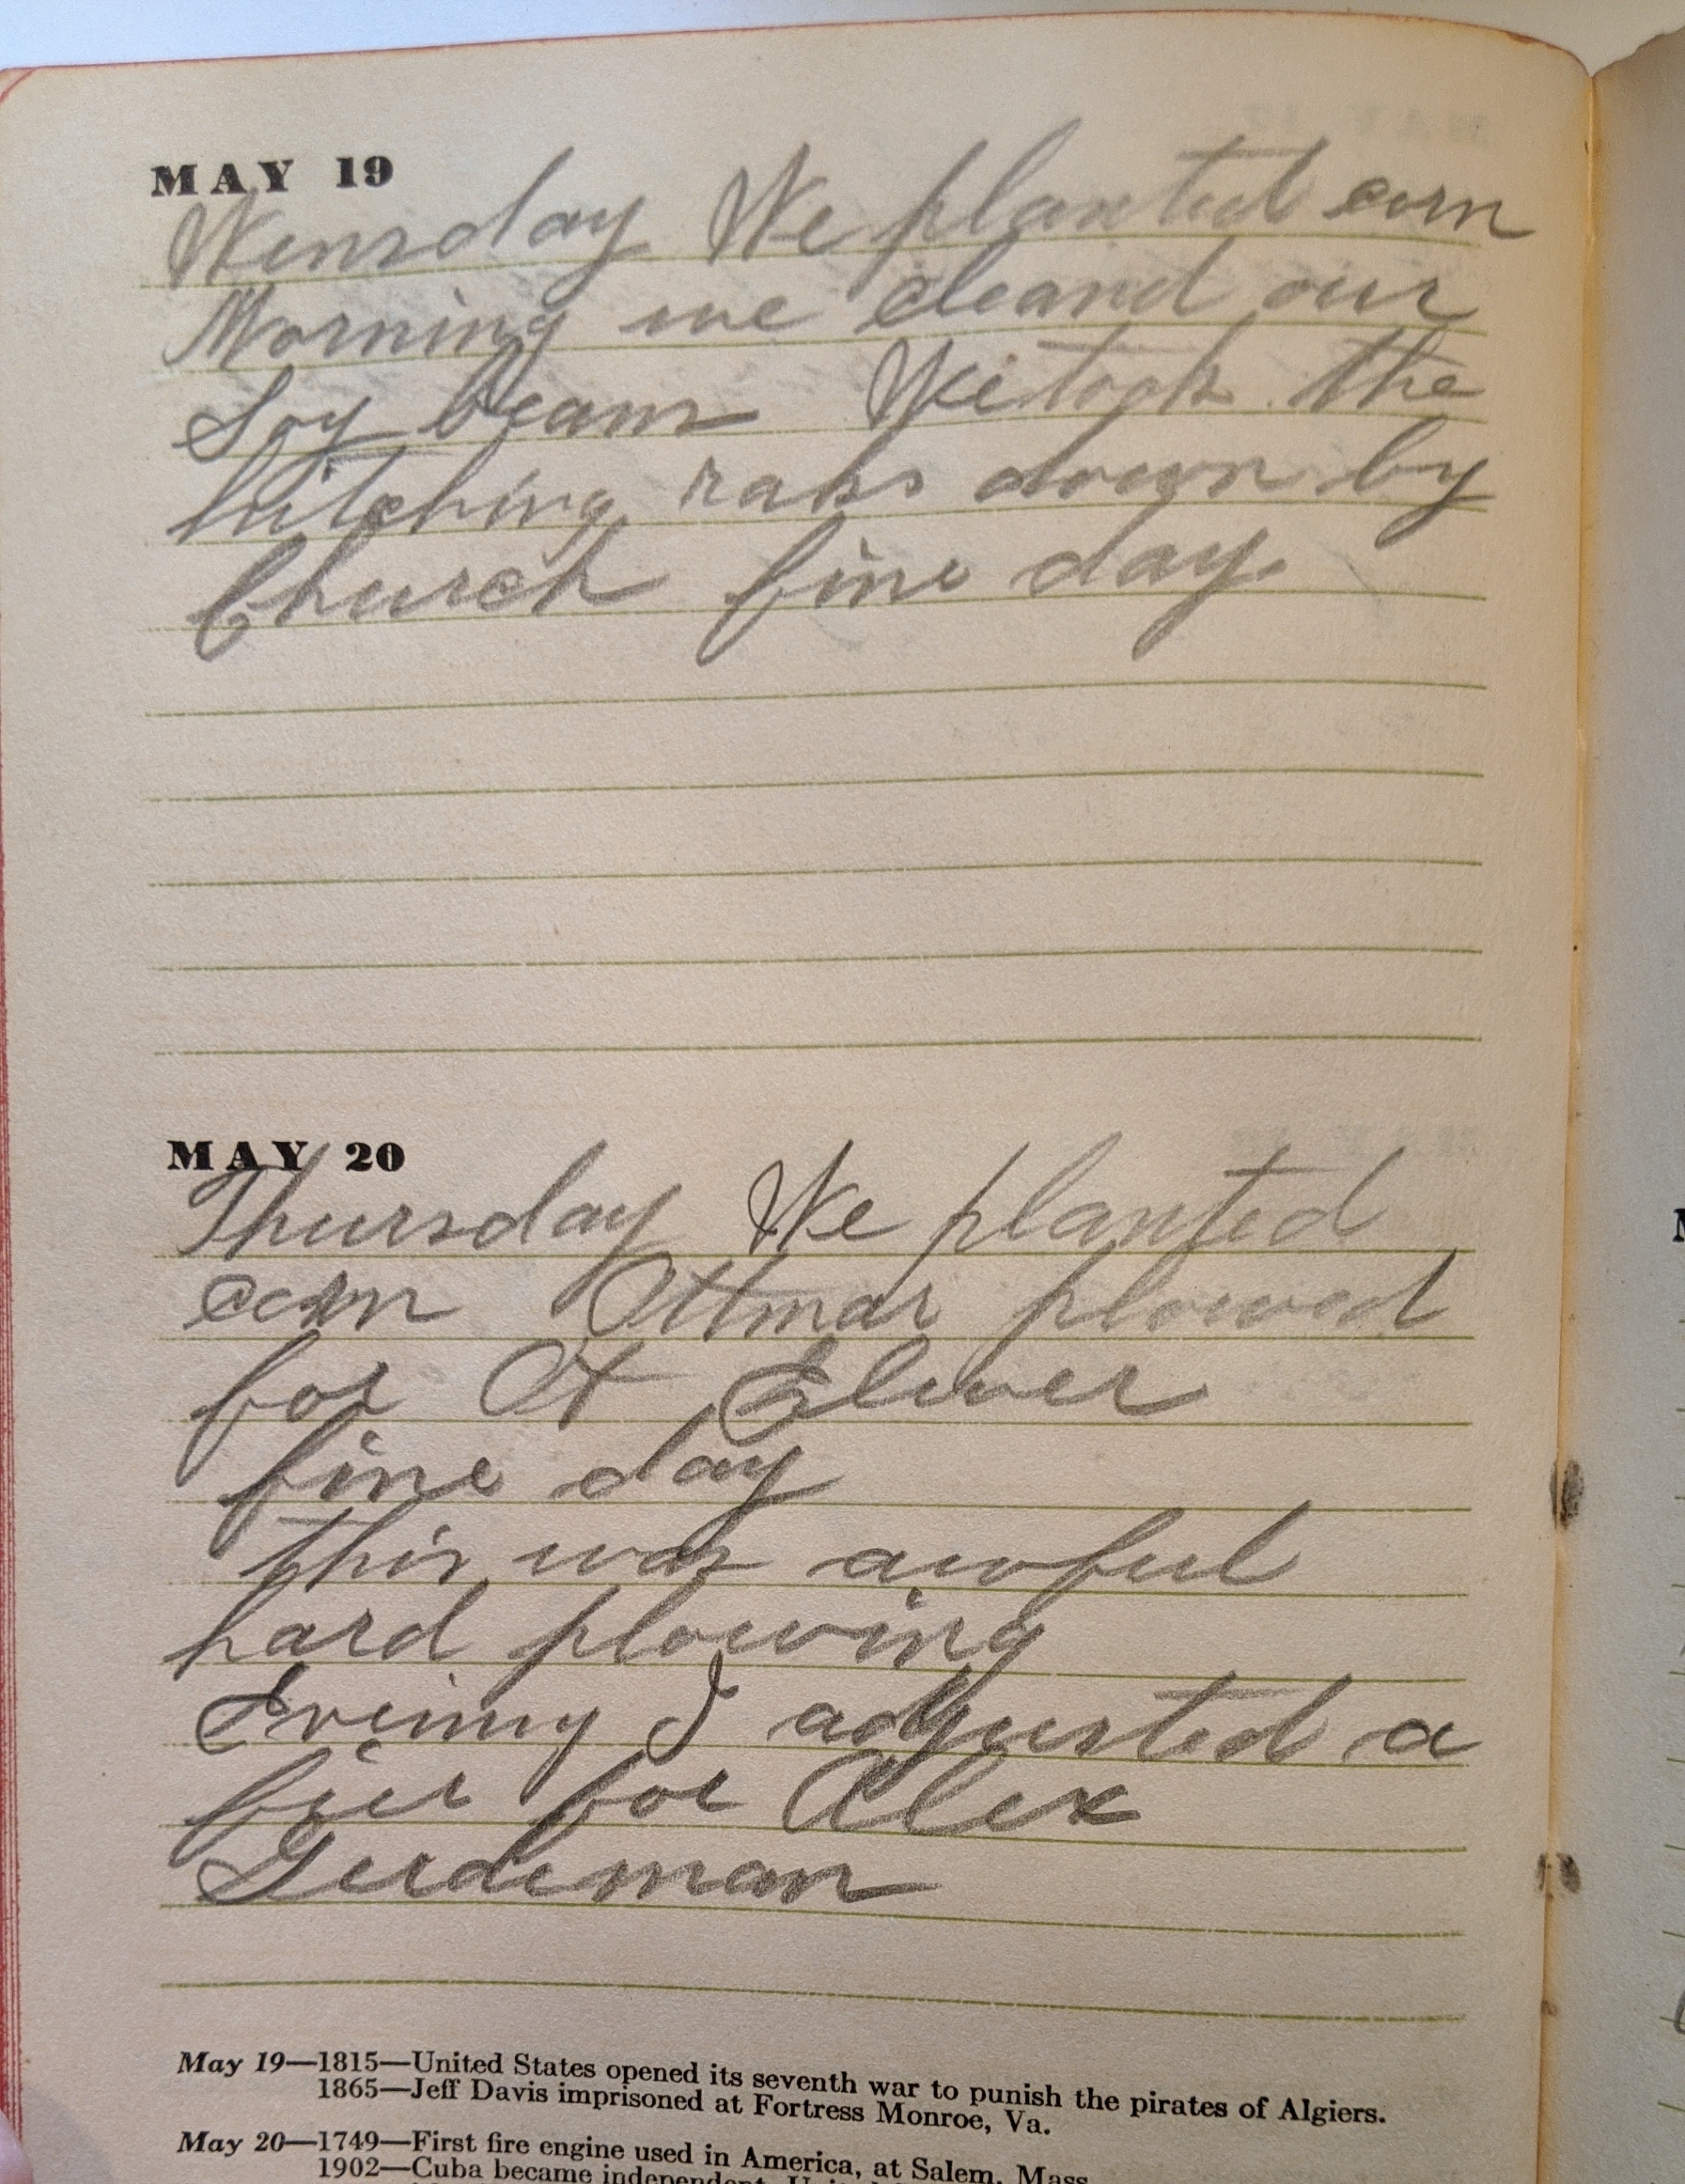 MAY 19
Wensday We planted corn
Morning we cleand our
Soy beans We took the
hitching raks down by
Church fine day.
MAY 20
Thursday We planted
corn Ottmar plowed
for Ot Elwer
fine day
this was awful
hard plowing
Evening I adjusted a
for Alex
Gerdeman
May 19—1815—United States opened its seventh war to punish the pirates of Algiers.
1865—Jeff Davis imprisoned at Fortress Monroe, Va.
May 20—1749—First fire engine used in America, at Salem, Mass.
1902—Cuba became independent.